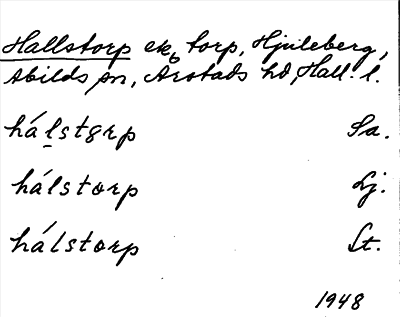 Hallstorp ek, torp, Hjuleberg,
Abilds sn, Årstads hd, Hall. l.
hálstɵrp Sa.
hálstorp Lj.
hálstorp St.
1948